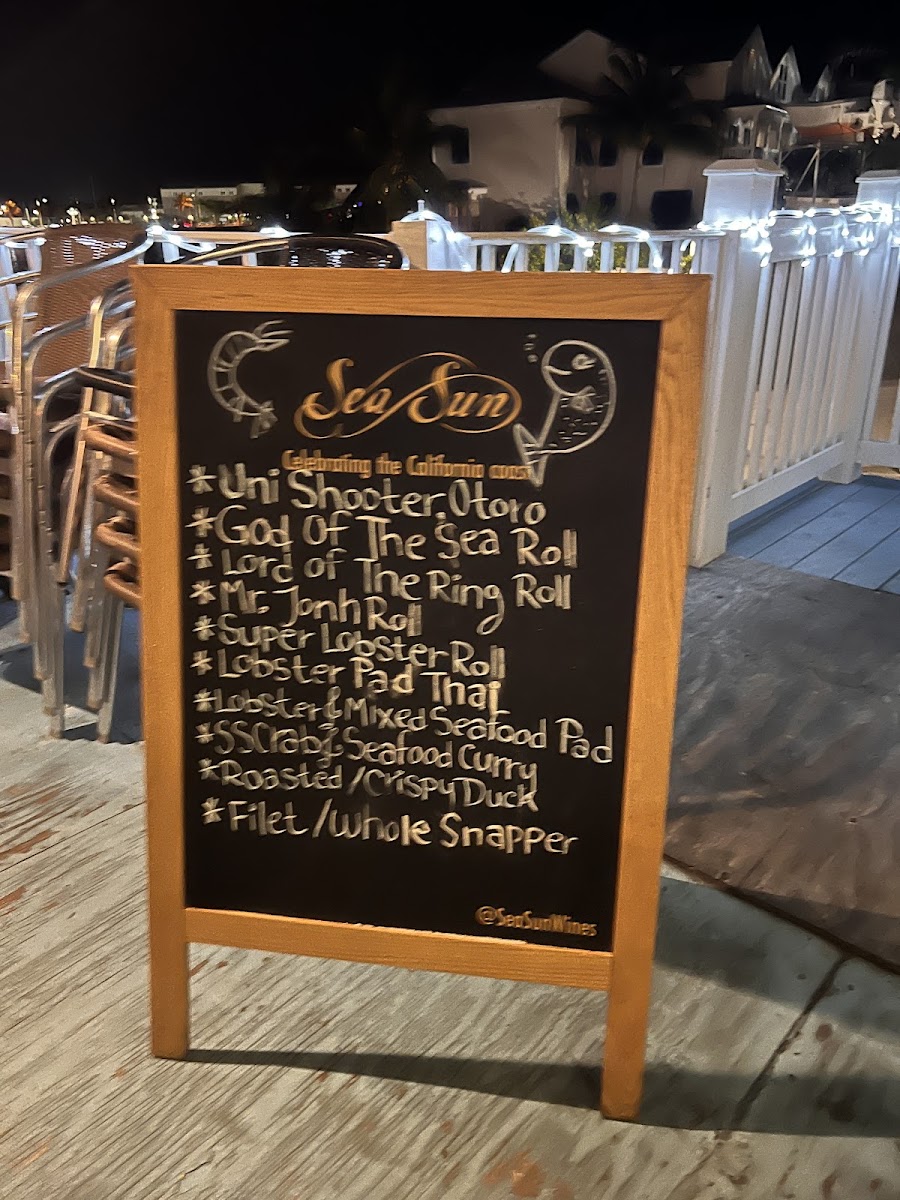 Sea Sun
Celebrating the California coast
*Uni Shooter, Otoro
*God Of The Sea Roll
*Lord of The Ring Roll
*Mr. Jonh Roll
*Super Lobster Roll
*Lobster Pad Thai
*Lobster & Mixed Seafood Pad
*SSCrab & Seafood Curry
*Roasted/Crispy Duck
*Filet/Whole Snapper
@SeaSunWines